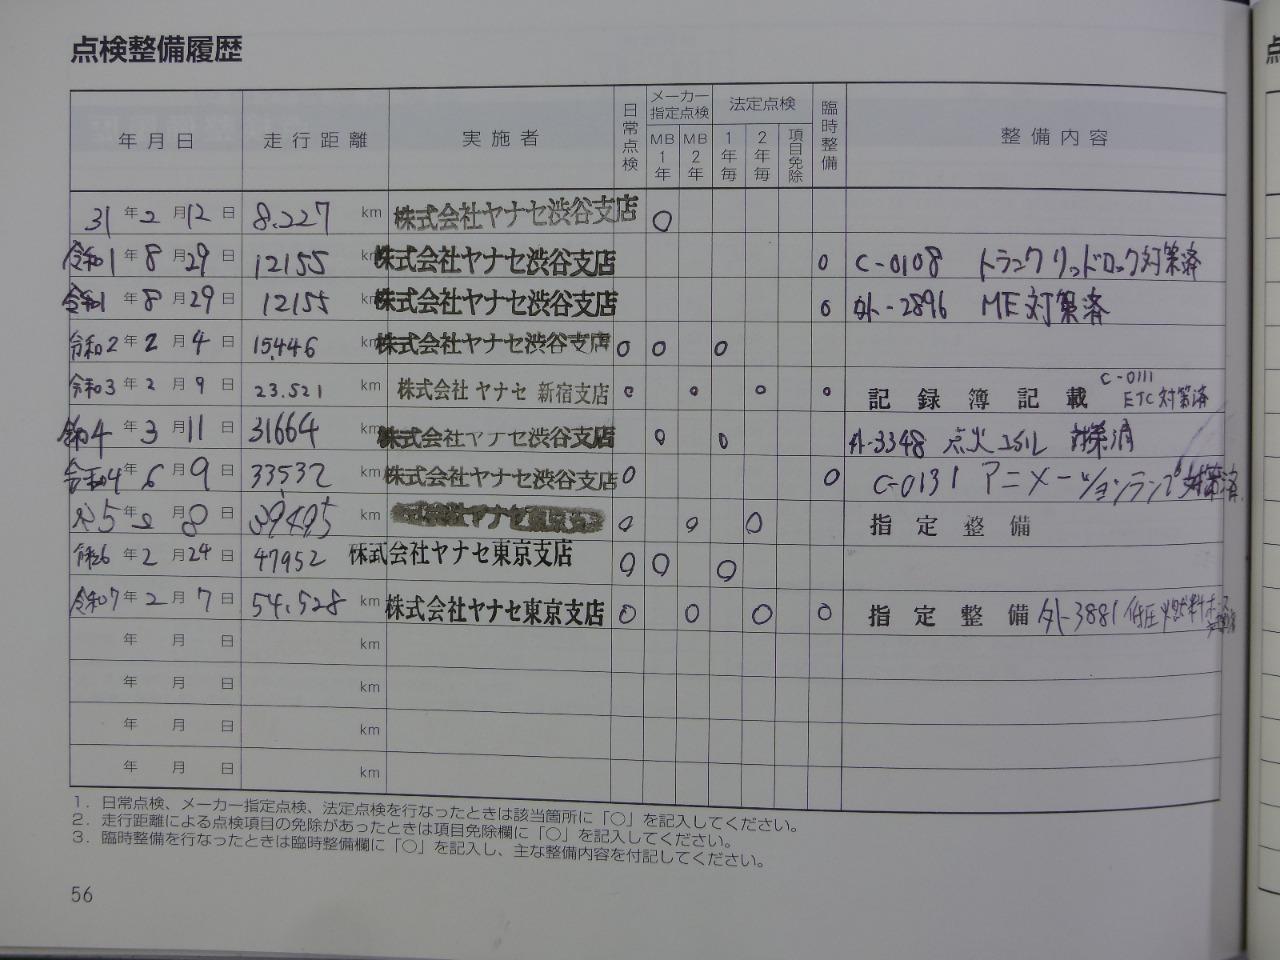 点検整備履歴
年月日 走行距離 実施者 日常点検 メーカー指定点検 MB1年 MB2年 法定点検 1年毎 2年毎 項目免除 臨時整備 整備内容
31年2月12日 8.227km 株式会社ヤナセ渋谷支店 ○
令和1年8月29日 12155km 株式会社ヤナセ渋谷支店 ○ C-0108 トランクリッドロック対策済
令和1年8月29日 12155km 株式会社ヤナセ渋谷支店 ○ 外-2896 ME対策済
令和2年2月4日 15,446km 株式会社ヤナセ渋谷支店 ○ ○ ○
令和3年2月9日 23.521km 株式会社ヤナセ 新宿支店 ○ ○ ○ ○ 記録簿記載 C-0111 ETC対策済
令和4年3月11日 31664km 株式会社ヤナセ渋谷支店 ○ ○ 外-3348 点火コイル 対策済
令和4年6月9日 33532km 株式会社ヤナセ渋谷支店 ○ ○ C-0131 アニメーションランプ対策済
5年2月8日 39495km 株式会社ヤナセ ○ ○ ○ 指定整備
令和6年2月24日 47952 株式会社ヤナセ東京支店 ○ ○ ○
令和7年2月7日 54.528km 株式会社ヤナセ東京支店 ○ ○ ○ ○ 指定整備 外-3881 低圧燃料ホース
年 月 日 km
年 月 日 km
年 月 日 km
年 月 日 km
1. 日常点検、メーカー指定点検、法定点検を行なったときは該当箇所に「○」を記入してください。
2. 走行距離による点検項目の免除があったときは項目免除欄に「○」を記入してください。
3. 臨時整備を行なったときは臨時整備欄に「○」を記入し、主な整備内容を付記してください。
56